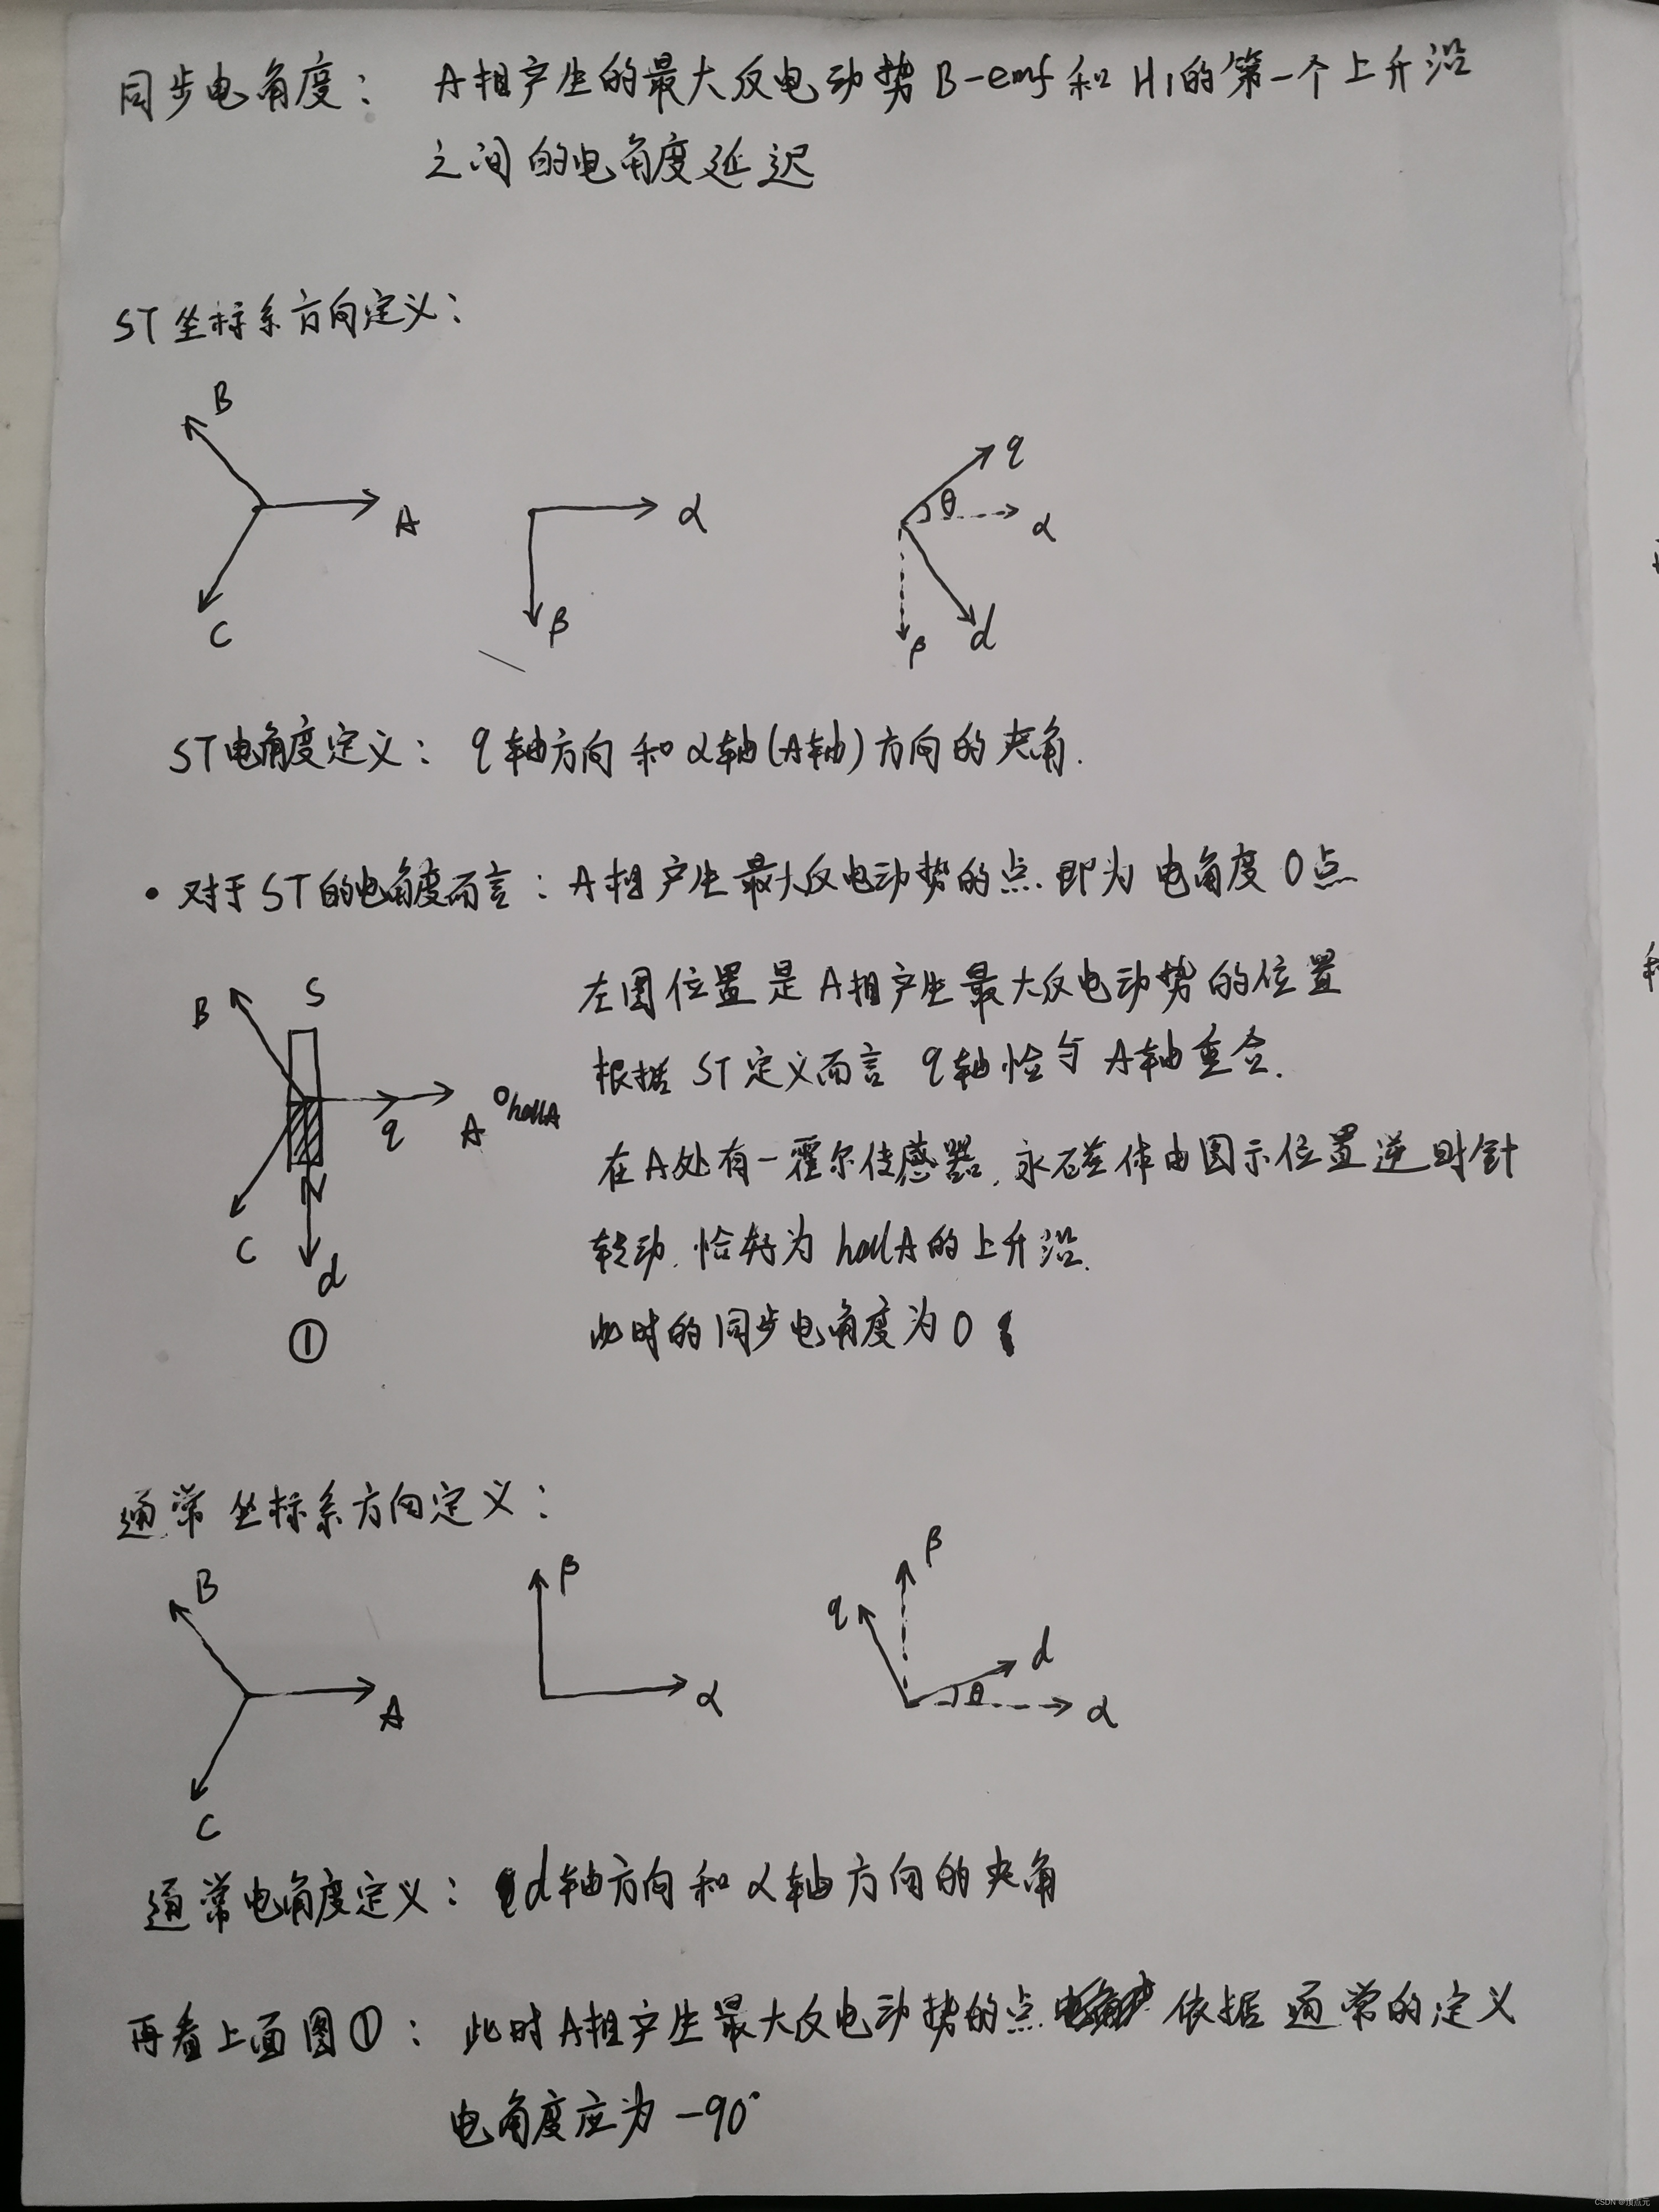 同步电角度： A相产生的最大反电动势B-emf和H1的第一个上升沿
之间的电角度延迟
ST坐标系方向定义：
B
A
C
α
β
q
θ
α
β
d
ST电角度定义： q轴方向和α轴(A轴)方向的夹角.
• 对于ST的电角度而言：A相产生最大反电动势的点.即为电角度0点
B
S
A
hallA
q
C
N
d
①
左图位置是A相产生最大反电动势的位置
根据ST定义而言 q轴恰与A轴重合.
在A处有一霍尔传感器,永磁体由图示位置逆时针
转动,恰好为hallA的上升沿.
此时的同步电角度为0
通常坐标系方向定义：
B
A
C
β
α
β
q
d
θ
α
通常电角度定义： d轴方向和α轴方向的夹角
再看上面图①： 此时A相产生最大反电动势的点 依据通常的定义
电角度应为-90°
CSDN @顶点元